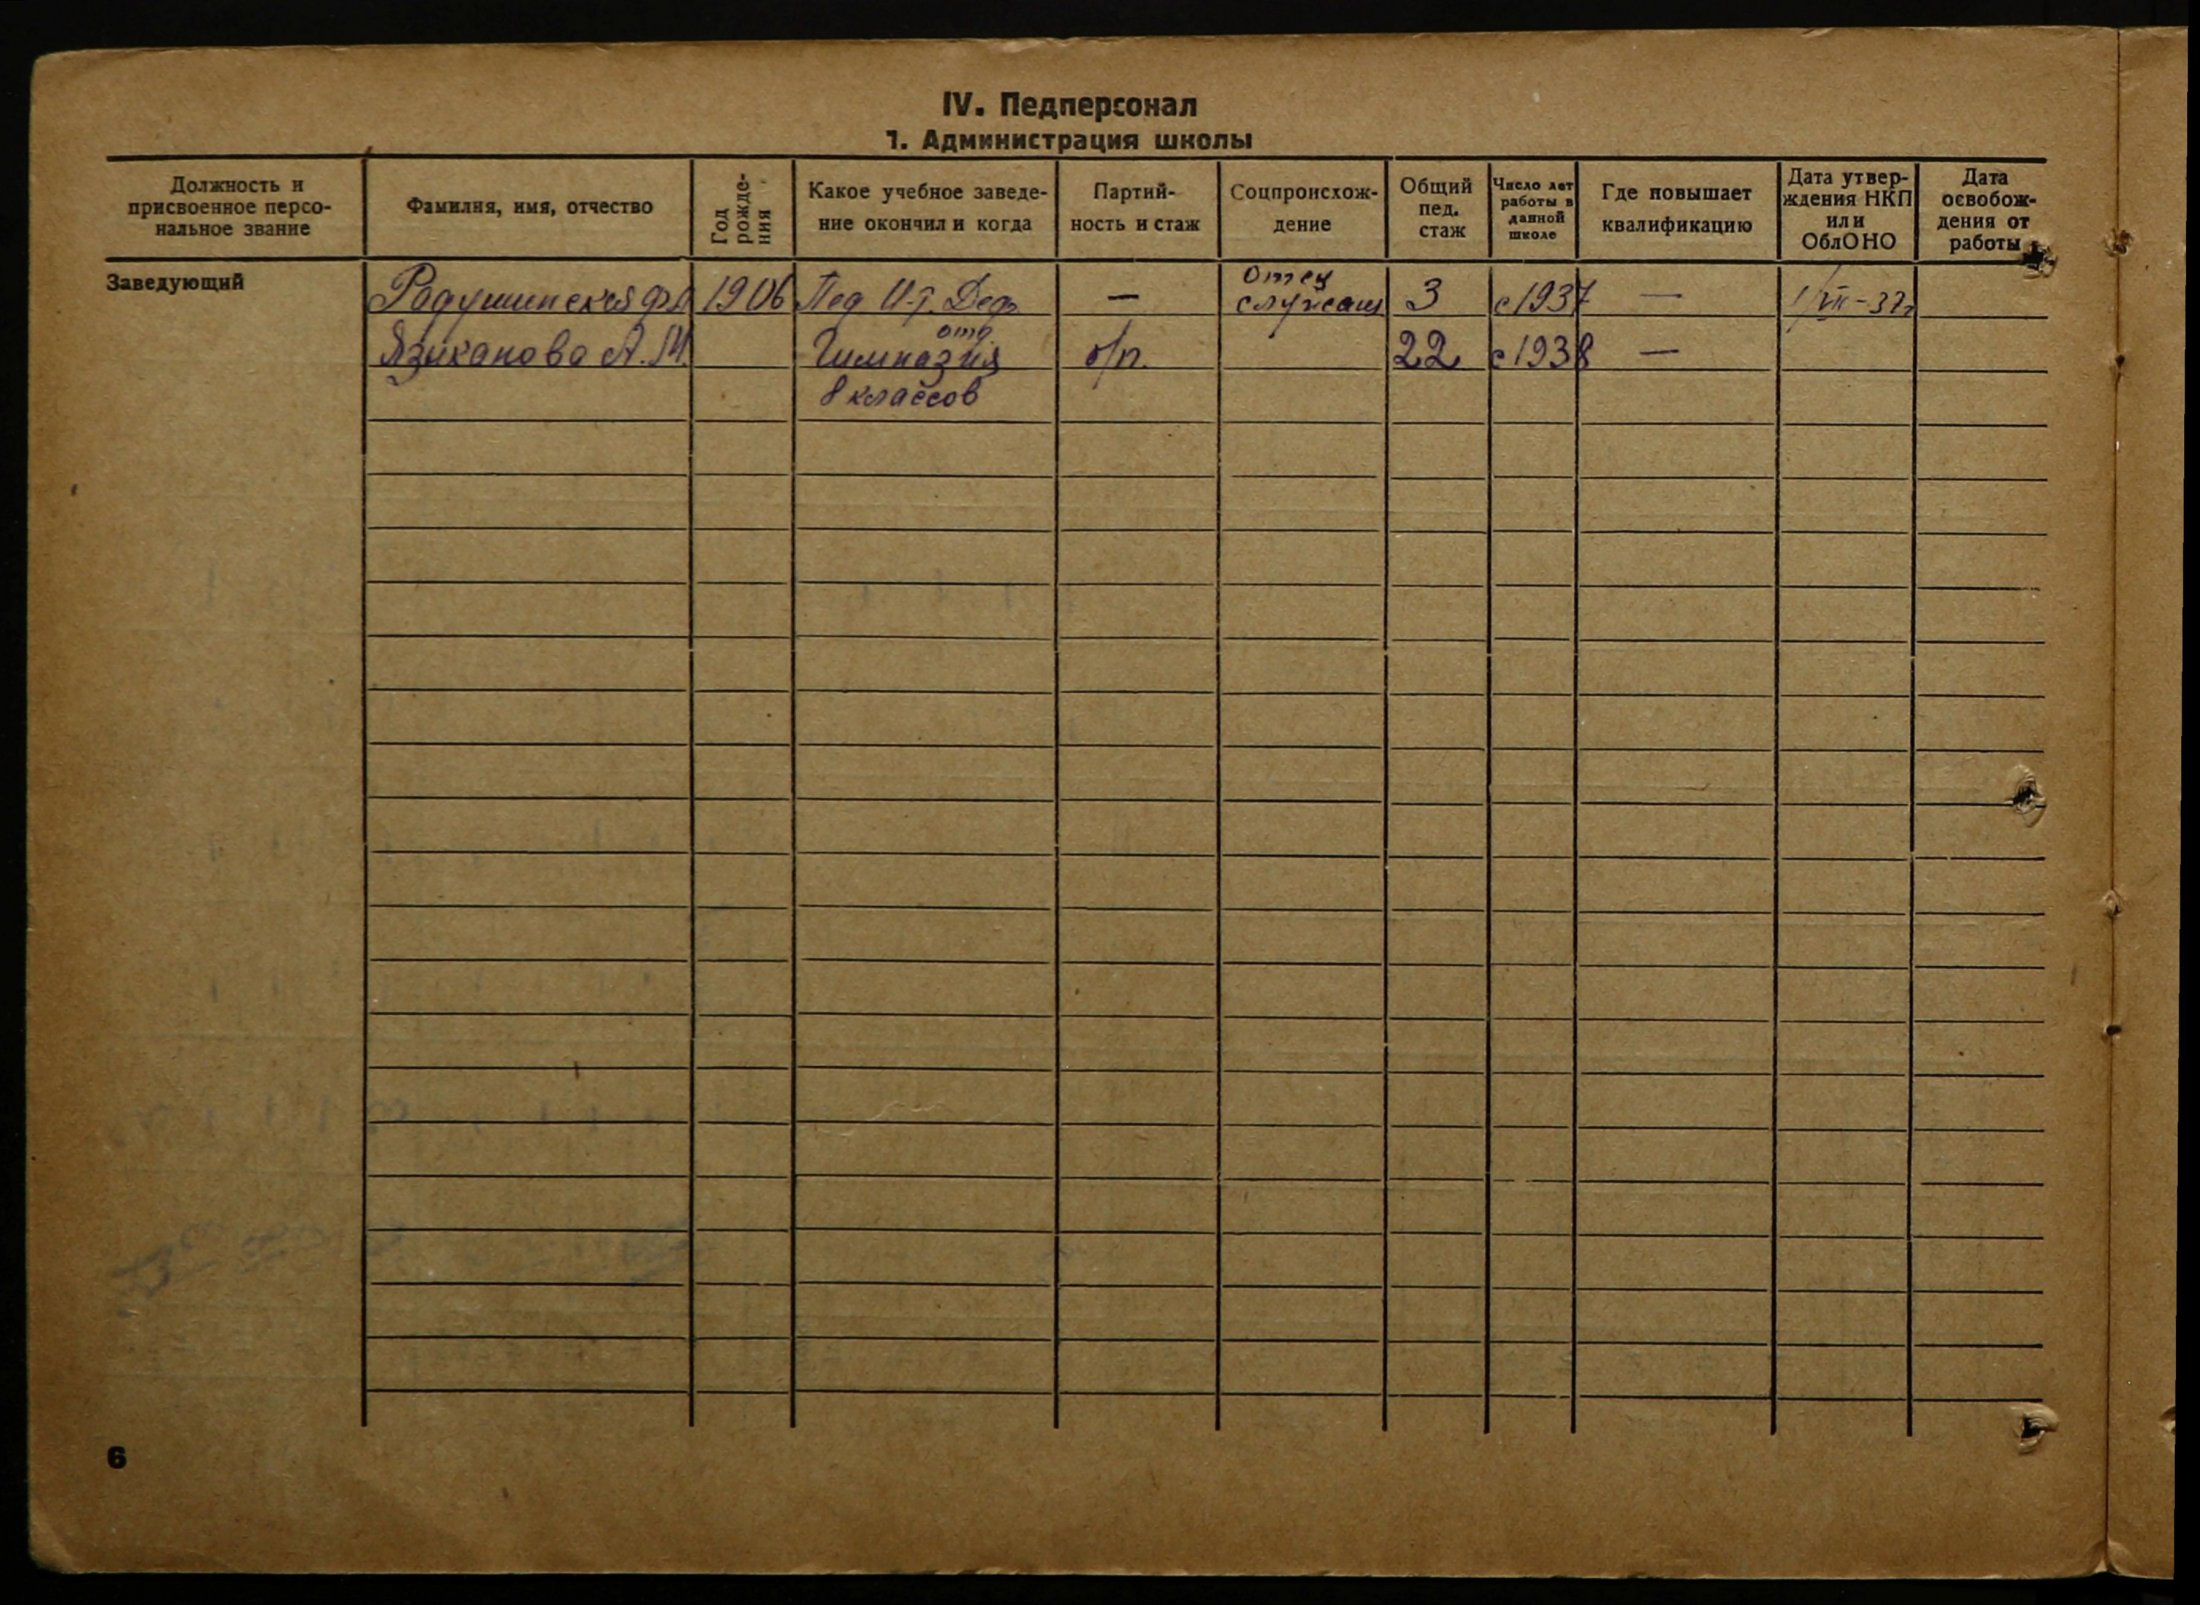 IV. Педперсонал
1. Администрация школы
Должность и
присвоенное персо-
нальное звание
Фамилия, имя, отчество
Год
рожде-
ния
Какое учебное заведе-
ние окончил и когда
Партий-
ность и стаж
Соцпроисхож-
дение
Общий
пед.
стаж
Число лет
работы в
данной
школе
Где повышает
квалификацию
Дата утвер-
ждения НКП
или
ОблОНО
Дата
освобож-
дения от
работы
Заведующий
Радушинская
1906
Пед И-т. Деф.
отд.
—
Отец
служащ
3
с 1937
—
1/VIII-37г
Языканова А. М.
Гимназия
8 классов
б/п.
22
с 1938
—
6